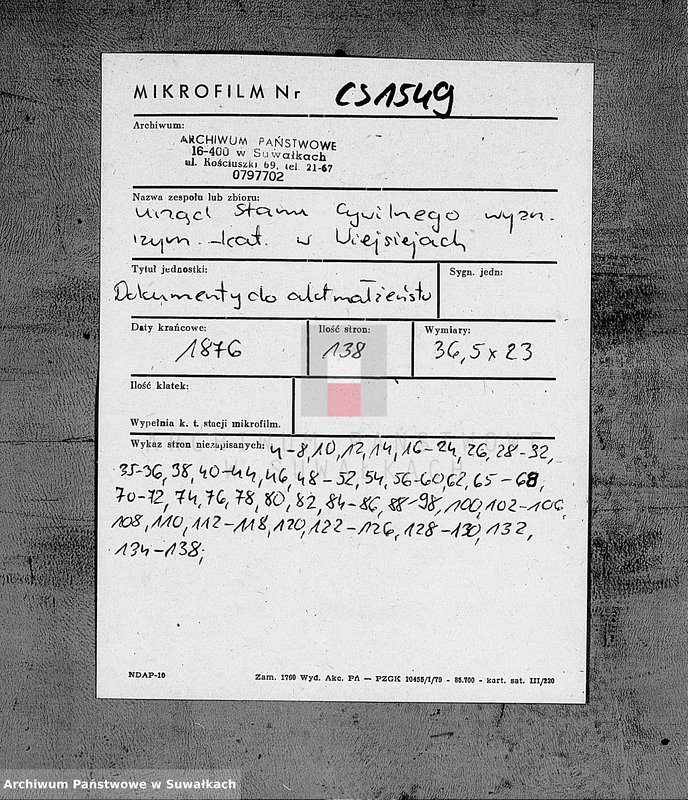 MIKROFILM Nr CS1549
Archiwum:
ARCHIWUM PAŃSTWOWE
16-400 w Suwałkach
ul. Kościuszki 69, tel. 21-67
0797702
Nazwa zespołu lub zbioru:
Urząd Stanu Cywilnego wyzn.
rzym.-kat. w Wiejsiejach
Tytuł jednostki:
Sygn. jedn:
Dokumenty do akt małżeństw
Daty krańcowe:
1876
Ilość stron:
138
Wymiary:
36,5 x 23
Ilość klatek:
Wypełnia k. t. stacji mikrofilm.
Wykaz stron niezapisanych: 4-8, 10, 12, 14, 16-24, 26, 28-32,
35-36, 38, 40-44, 46, 48-52, 54, 56-60, 62, 65-68,
70-72, 74, 76, 78, 80, 82, 84-86, 88-98, 100, 102-106,
108, 110, 112-118, 120, 122-126, 128-130, 132,
134-138;
ARCHIWUM PAŃSTWOWE
W SUWAŁKACH
NDAP-10
Zam. 1760 Wyd. Akc. PA — PZGK 10458/1/79 - 85.700 - kart. sat. III/220
Archiwum Państwowe w Suwałkach